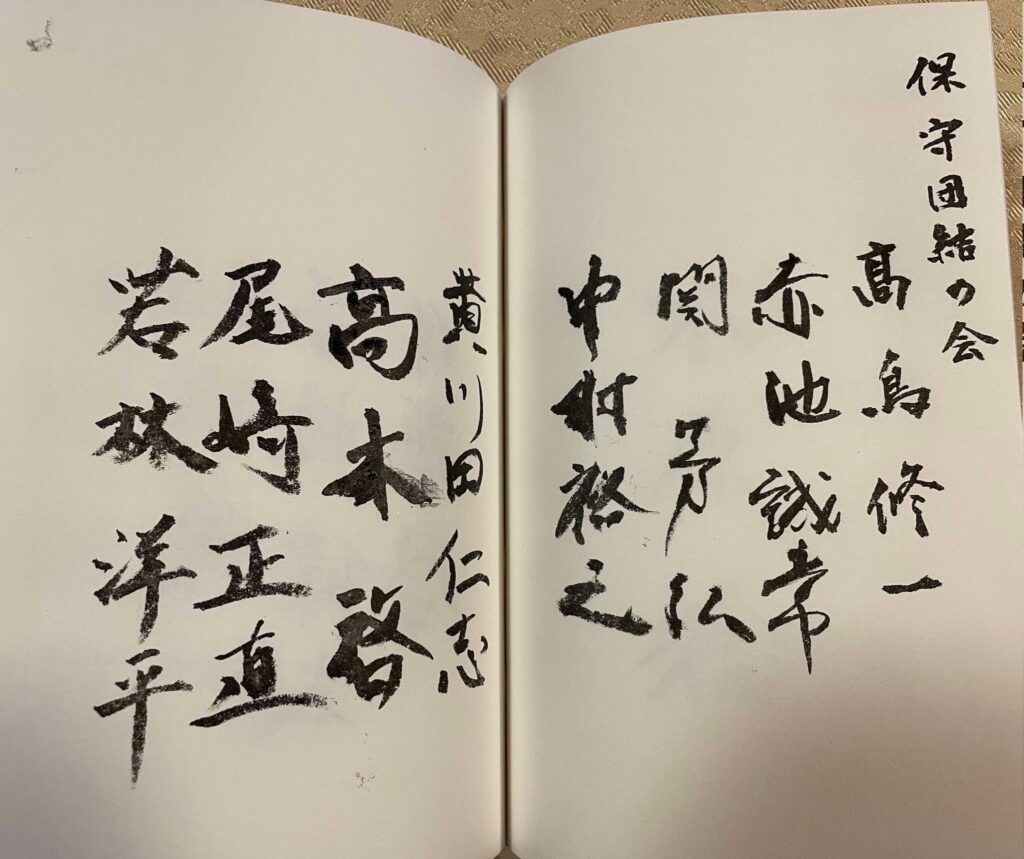 保守団結の会
髙鳥修一
赤池誠章
関芳弘
中村裕之
黄川田仁志
高木啓
尾崎正直
若林洋平